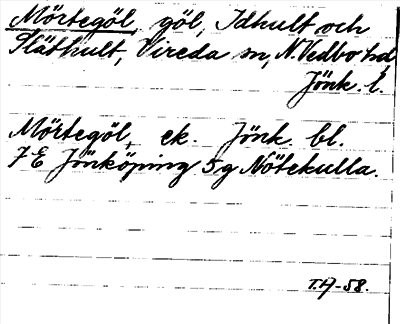 Mörtegöl, göl, Idhult och
Släthult, Vireda sn, N. Vedbo hd
Jönk. l.
Mörtegöl, ek. Jönk. bl.
7E Jönköping 5g Nötekulla.
T.H-58.